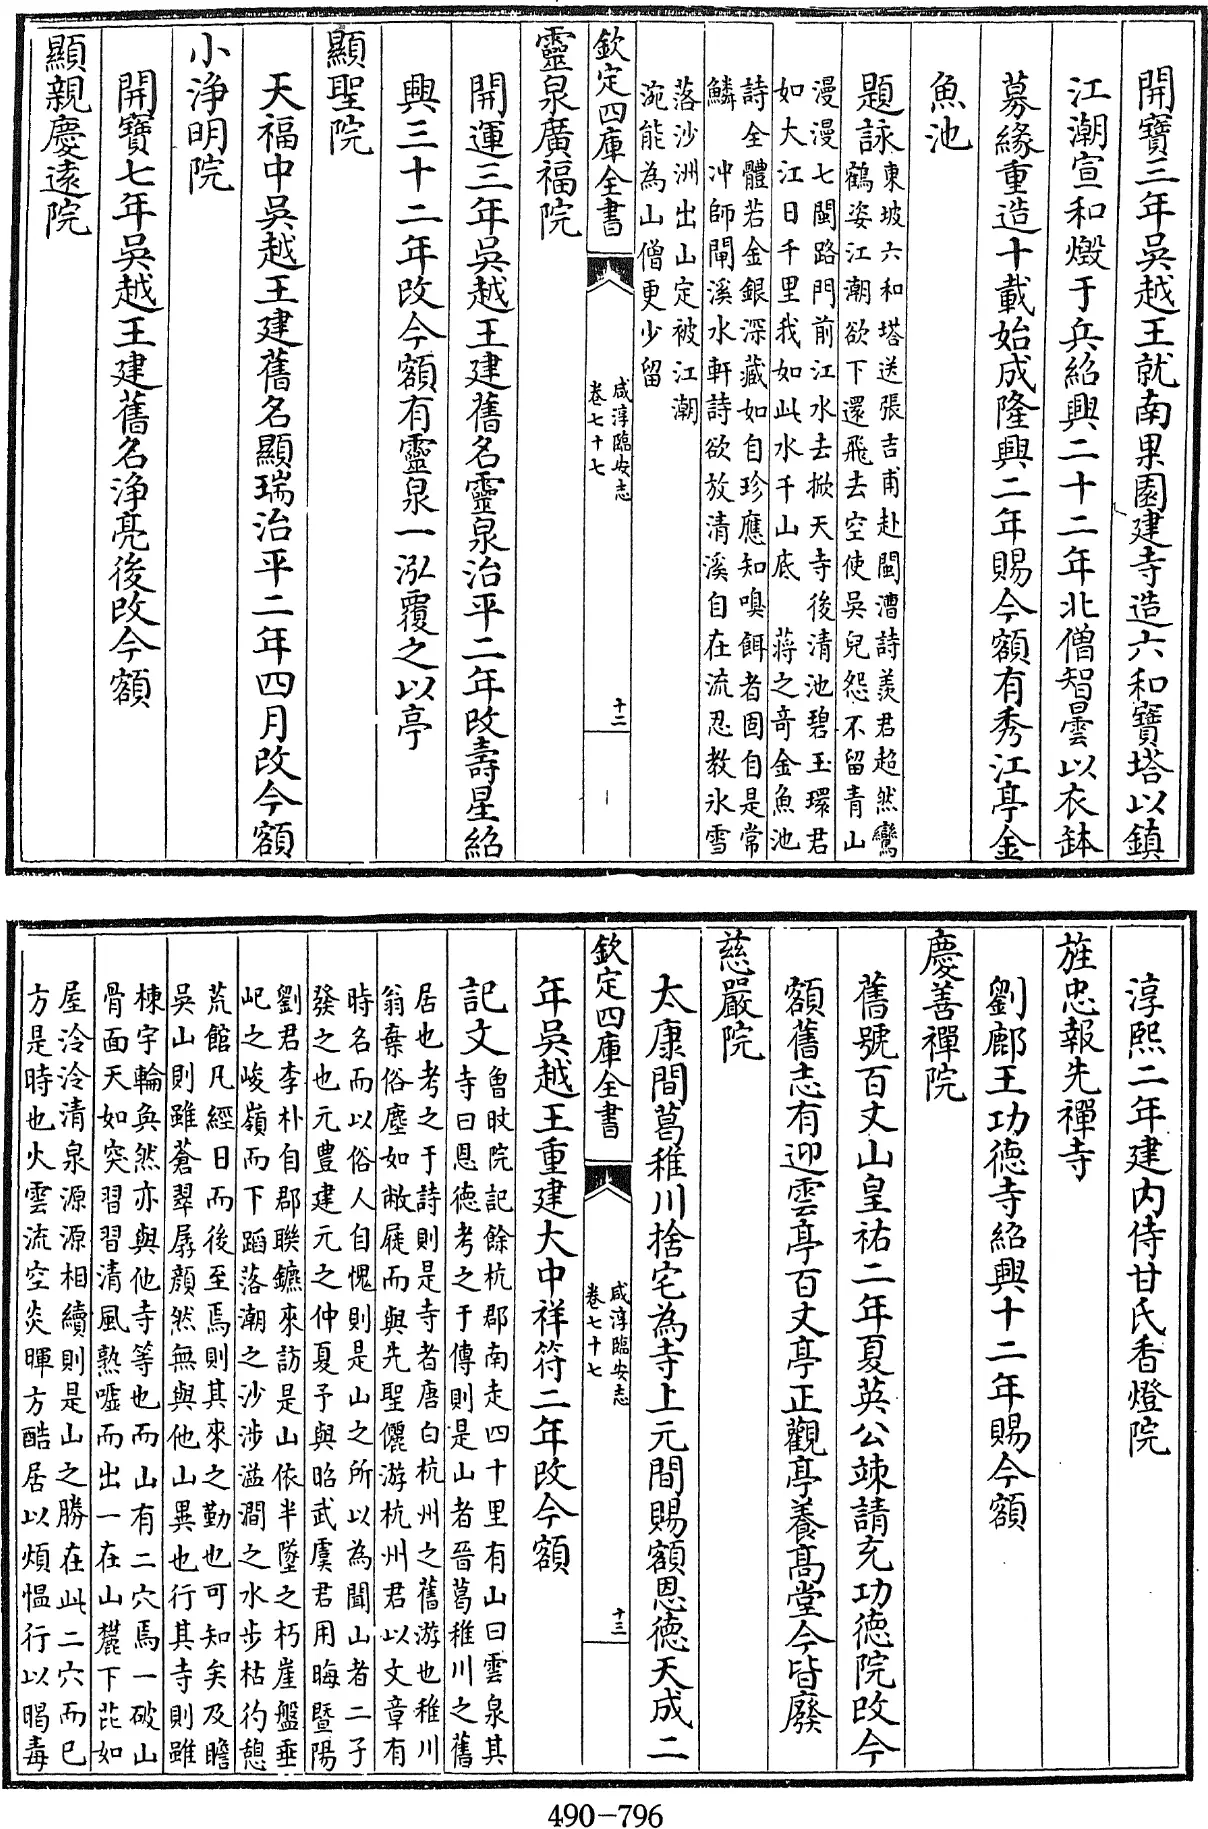 開寶三年吳越王就南果園建寺造六和寶塔以鎮
江潮宣和燬于兵紹興二十二年北僧智曇以衣鉢
募緣重造十載始成隆興二年賜今額有秀江亭金
魚池
題詠
東坡六和塔送張吉甫赴閩漕詩羨君超然鸞
鶴姿江潮欲下還飛去空使吳兒怨不留青山
漫漫七閩路門前江水去掀天寺後清池碧玉環君
如大江日千里我如此水千山底　蔣之奇金魚池
詩全體若金銀深藏如自珍應知嗅餌者固自是常
鱗　冲師閘溪水軒詩欲放清溪自在流忍教氷雪
落沙洲出山定被江潮
涴能為山僧更少留
欽定四庫全書
咸淳臨安志
卷七十七
十二
靈泉廣福院
開運三年吳越王建舊名靈泉治平二年改壽星紹
興三十二年改今額有靈泉一泓覆之以亭
顯聖院
天福中吳越王建舊名顯瑞治平二年四月改今額
小淨明院
開寶七年吳越王建舊名淨亮後改今額
顯親慶遠院
淳熙二年建内侍甘氏香燈院
旌忠報先禪寺
劉鄜王功德寺紹興十二年賜今額
慶善禪院
舊號百丈山皇祐二年夏英公竦請充功德院改今
額舊志有迎雲亭百丈亭正觀亭養高堂今皆廢
慈嚴院
太康間葛稚川捨宅為寺上元間賜額恩德天成二
欽定四庫全書
咸淳臨安志
卷七十七
十三
年吳越王重建大中祥符二年改今額
記文
魯旼院記餘杭郡南走四十里有山曰雲泉其
寺曰恩德考之于傳則是山者晉葛稚川之舊
居也考之于詩則是寺者唐白杭州之舊游也稚川
翁棄俗塵如敝屣而與先聖儷游杭州君以文章有
時名而以俗人自愧則是山之所以為聞山者二子
發之也元豊建元之仲夏予與昭武虞君用晦暨陽
劉君李朴自郡聯鑣來訪是山依半墜之朽崖盤垂
屺之峻嶺而下蹈落潮之沙涉溢澗之水步枯彴憩
荒館凡經日而後至焉則其來之勤也可知矣及瞻
吳山則雖蒼翠孱顔然無與他山異也行其寺則雖
棟宇輪奐然亦與他寺等也而山有二穴焉一破山
骨面天如突習習清風熟嘘而出一在山麓下茈如
屋泠泠清泉源源相續則是山之勝在此二穴而已
方是時也火雲流空炎暉方酷居以煩愠行以暍毒
490-796